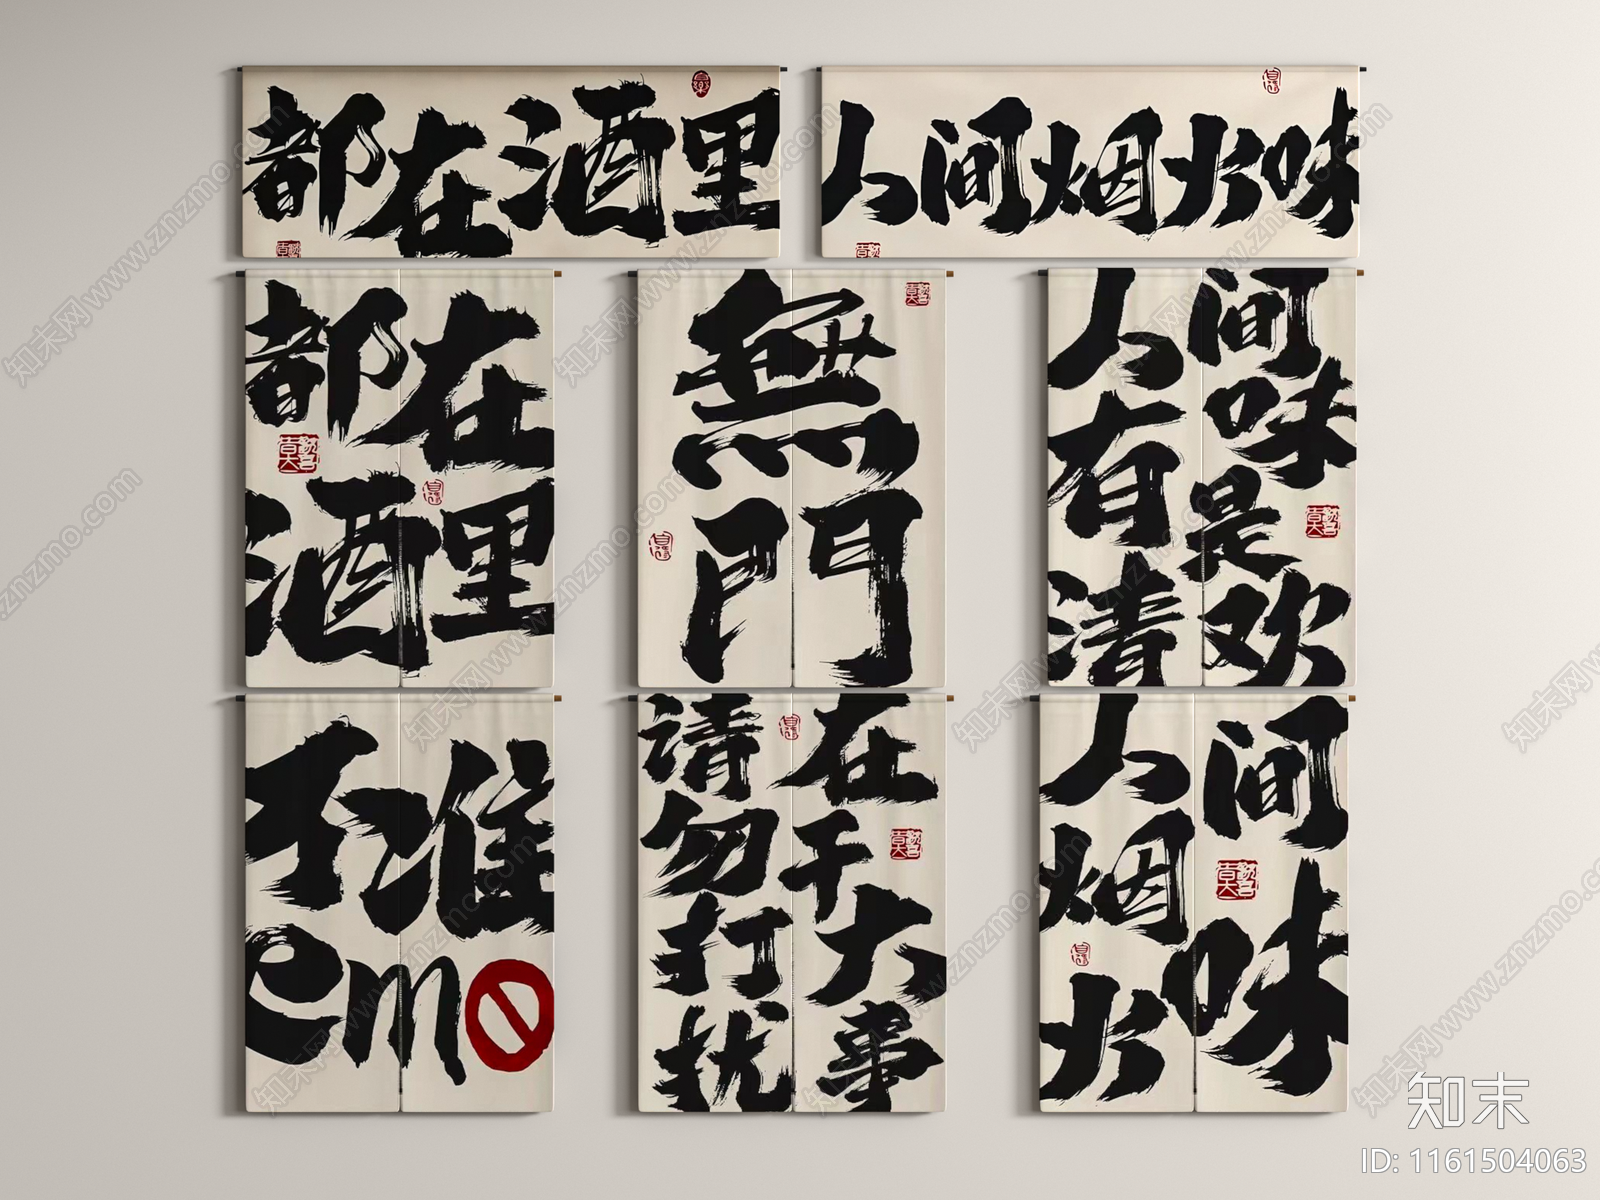 都在酒里
人间烟火味
都在
酒里
無
門
人间
有味
清是
欢
不准
emo
请勿打扰
在干大事
人间
烟
火味
知末
ID: 1161504063
知末网www.znzmo.com